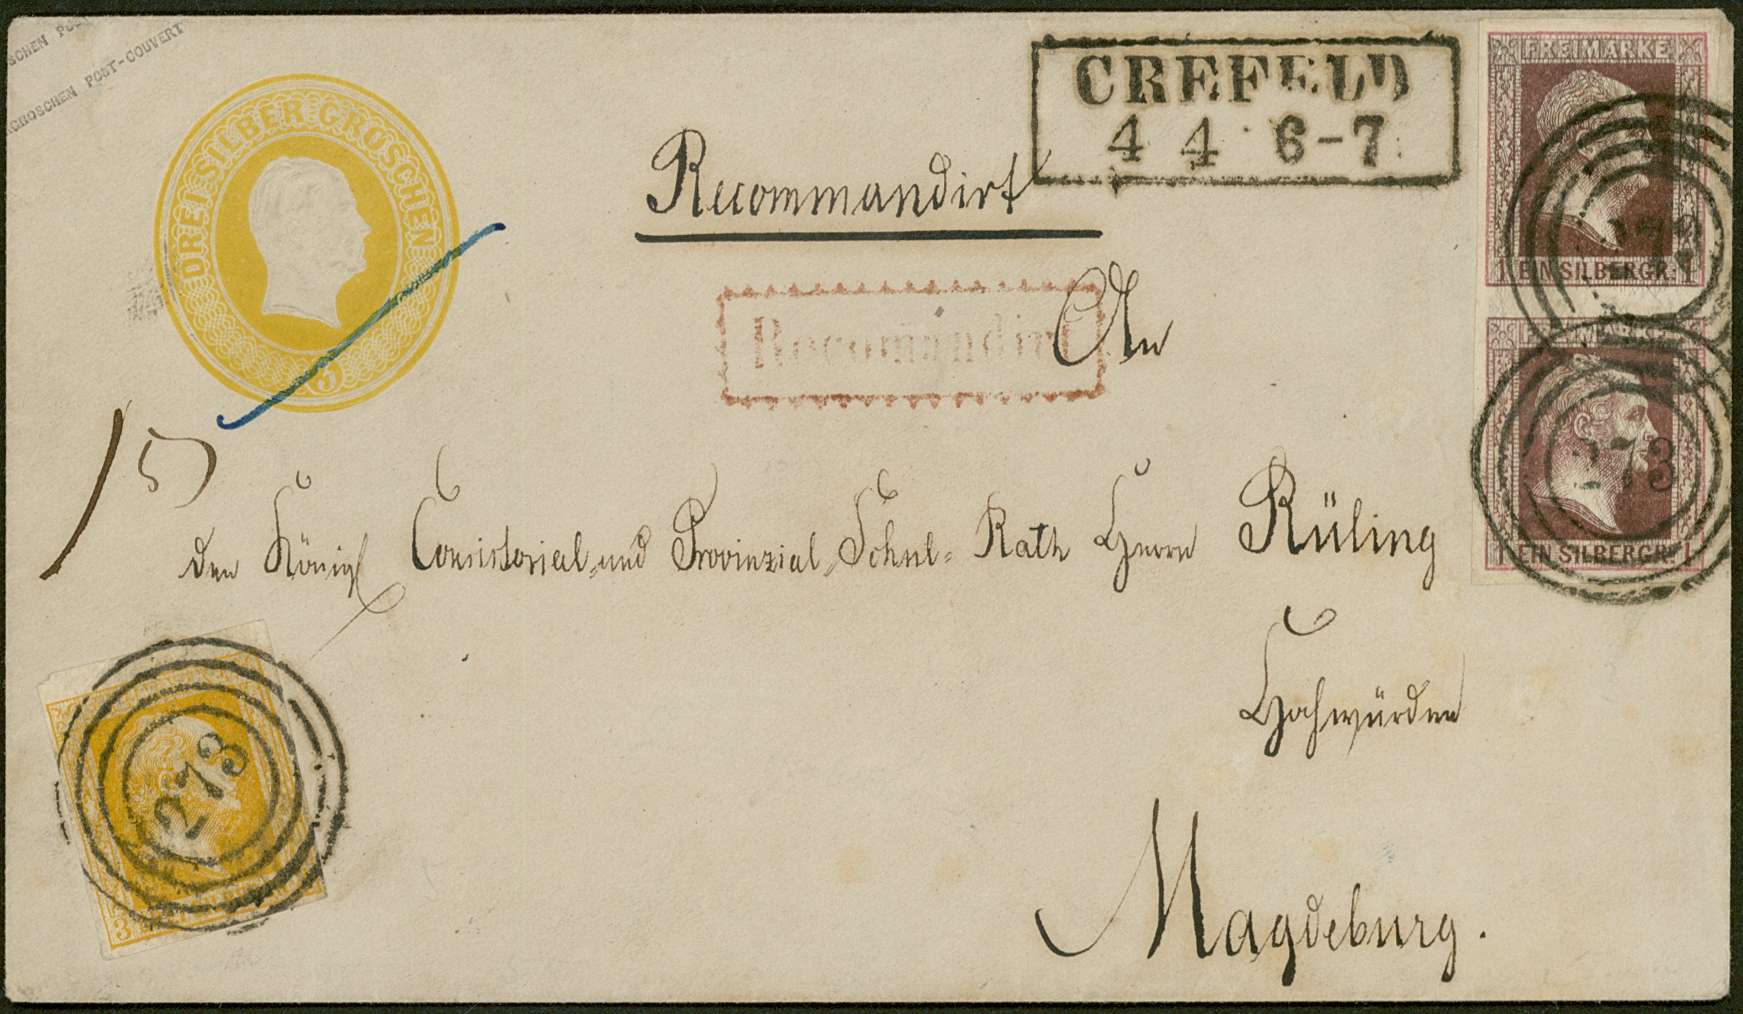 SCHEN PO
GROSCHEN POST-COUVERT
DREI SILBER GROSCHEN
3
CREFELD
4 4 6-7
Recommandirt
Recomandirt
An
FREIMARKE
1 EIN SILBERGR. 1
273
FREIMARKE
1 EIN SILBERGR. 1
273
15
den Königl Consistorial- und Provinzial-Schul- Rath Herrn Rüling
Hochwürden
273
3
Magdeburg.